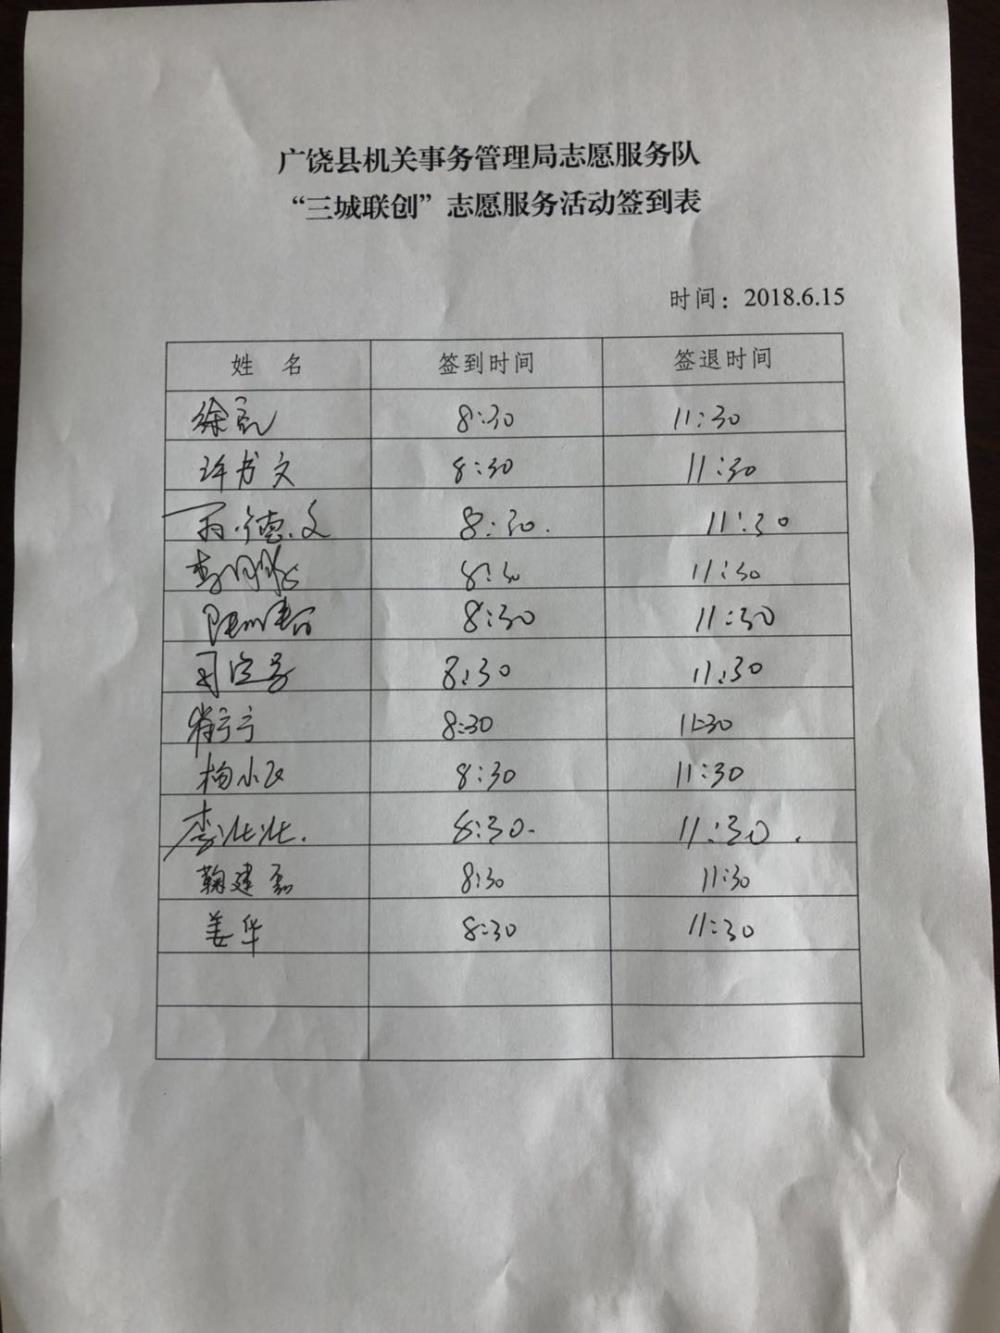 广饶县机关事务管理局志愿服务队
“三城联创”志愿服务活动签到表
时间：2018.6.15
姓 名 签到时间 签退时间
徐亮 8:30 11:30
许书文 8:30 11:30
德文 8:30. 11:30
李 8:30 11:30
8:30 11:30
8:30 11:30
宁宁 8:30 11:30
杨小 8:30 11:30
李 8:30. 11:30.
鞠建磊 8:30 11:30
姜华 8:30 11:30